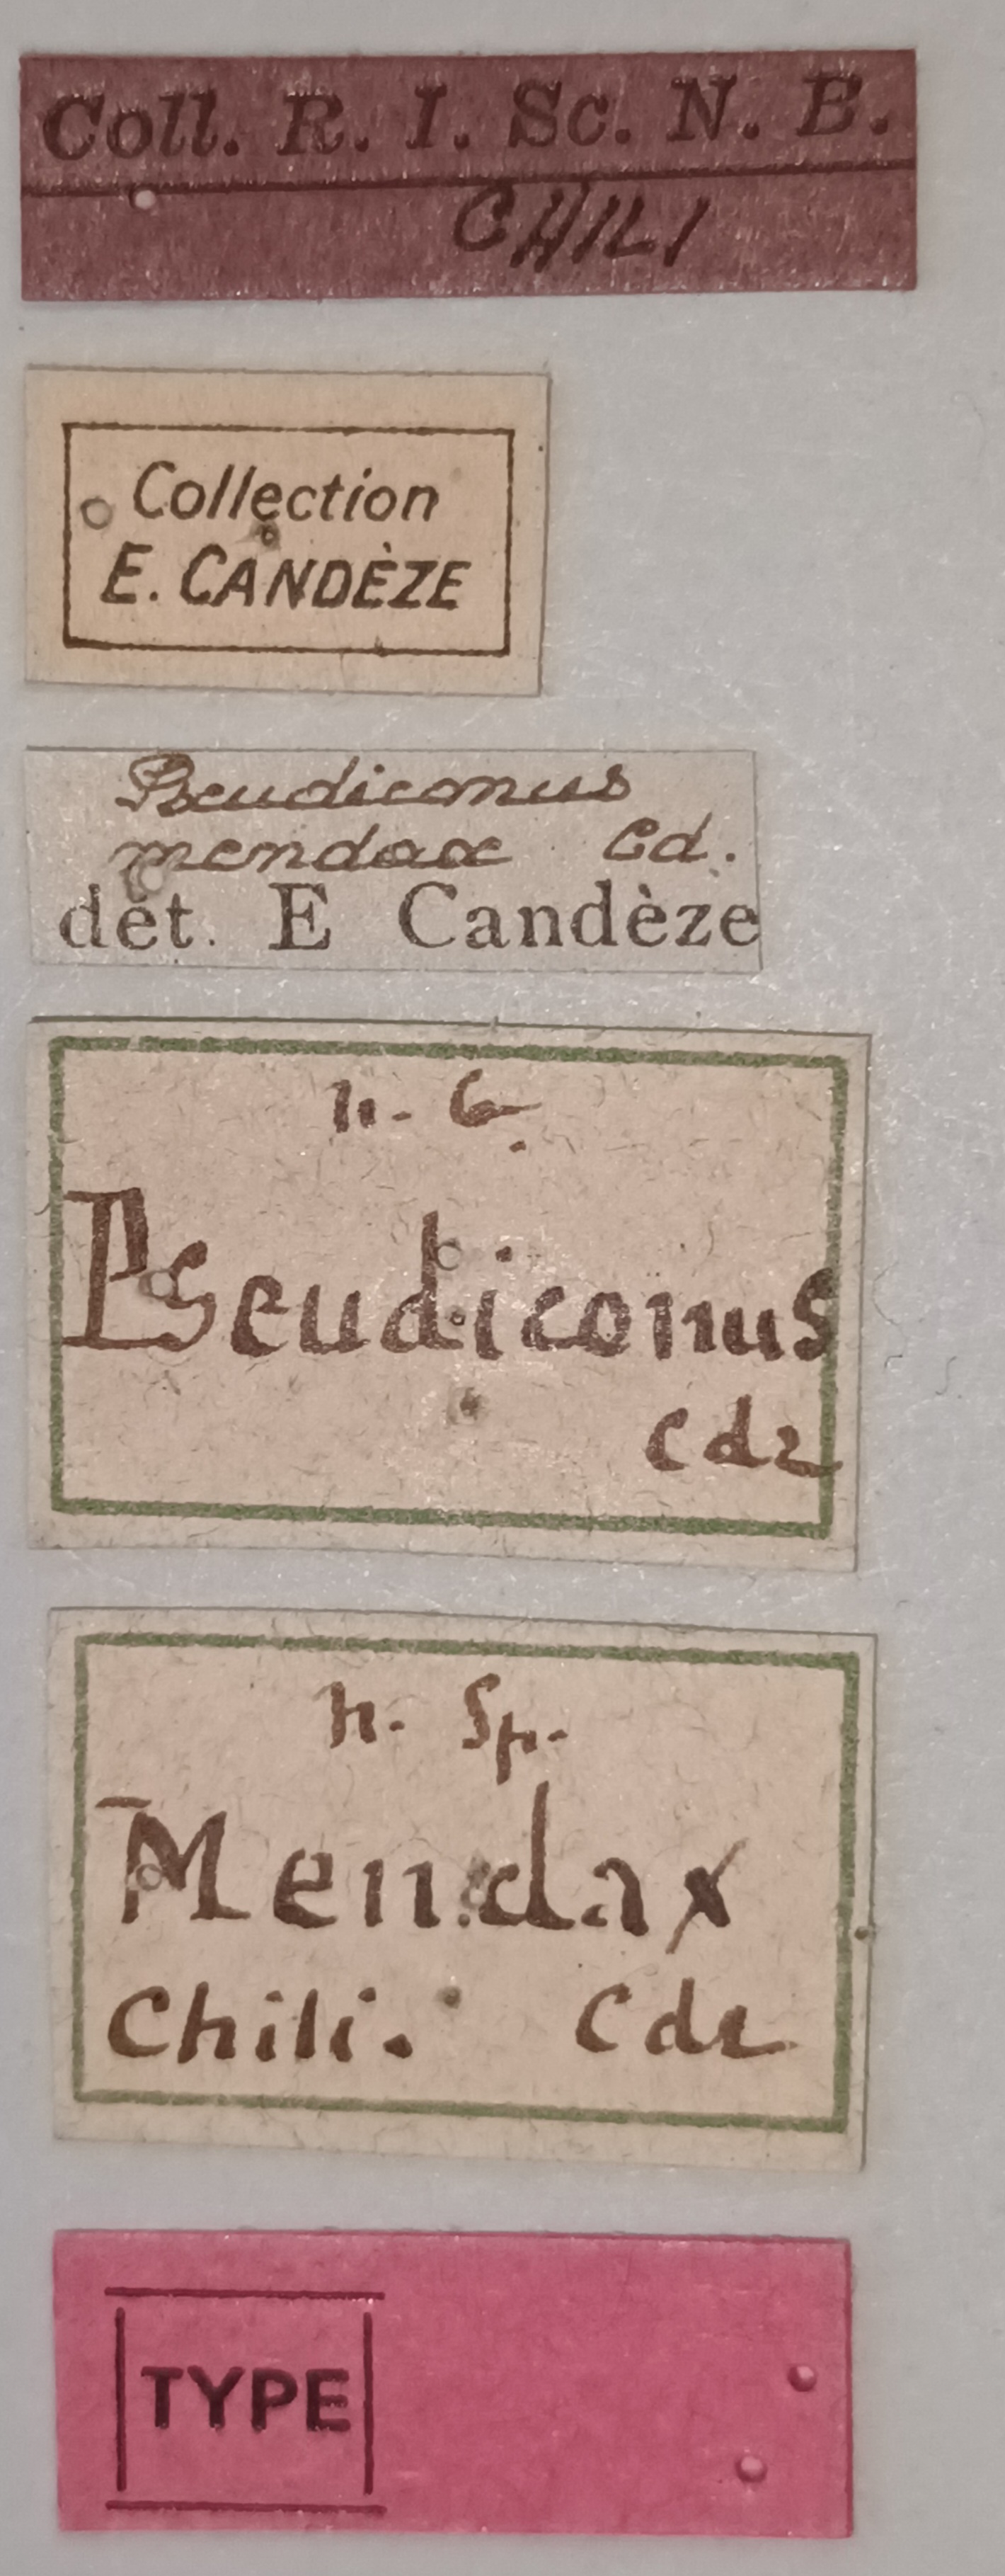 Coll. R. I. Sc. N. B.
CHILI
Collection
E. CANDÈZE
Pseudiconus
mendax Cd.
dét. E Candèze
n. G.
Pseudiconus
Cdz
n. Sp.
Mendax
Chili. Cdz
TYPE